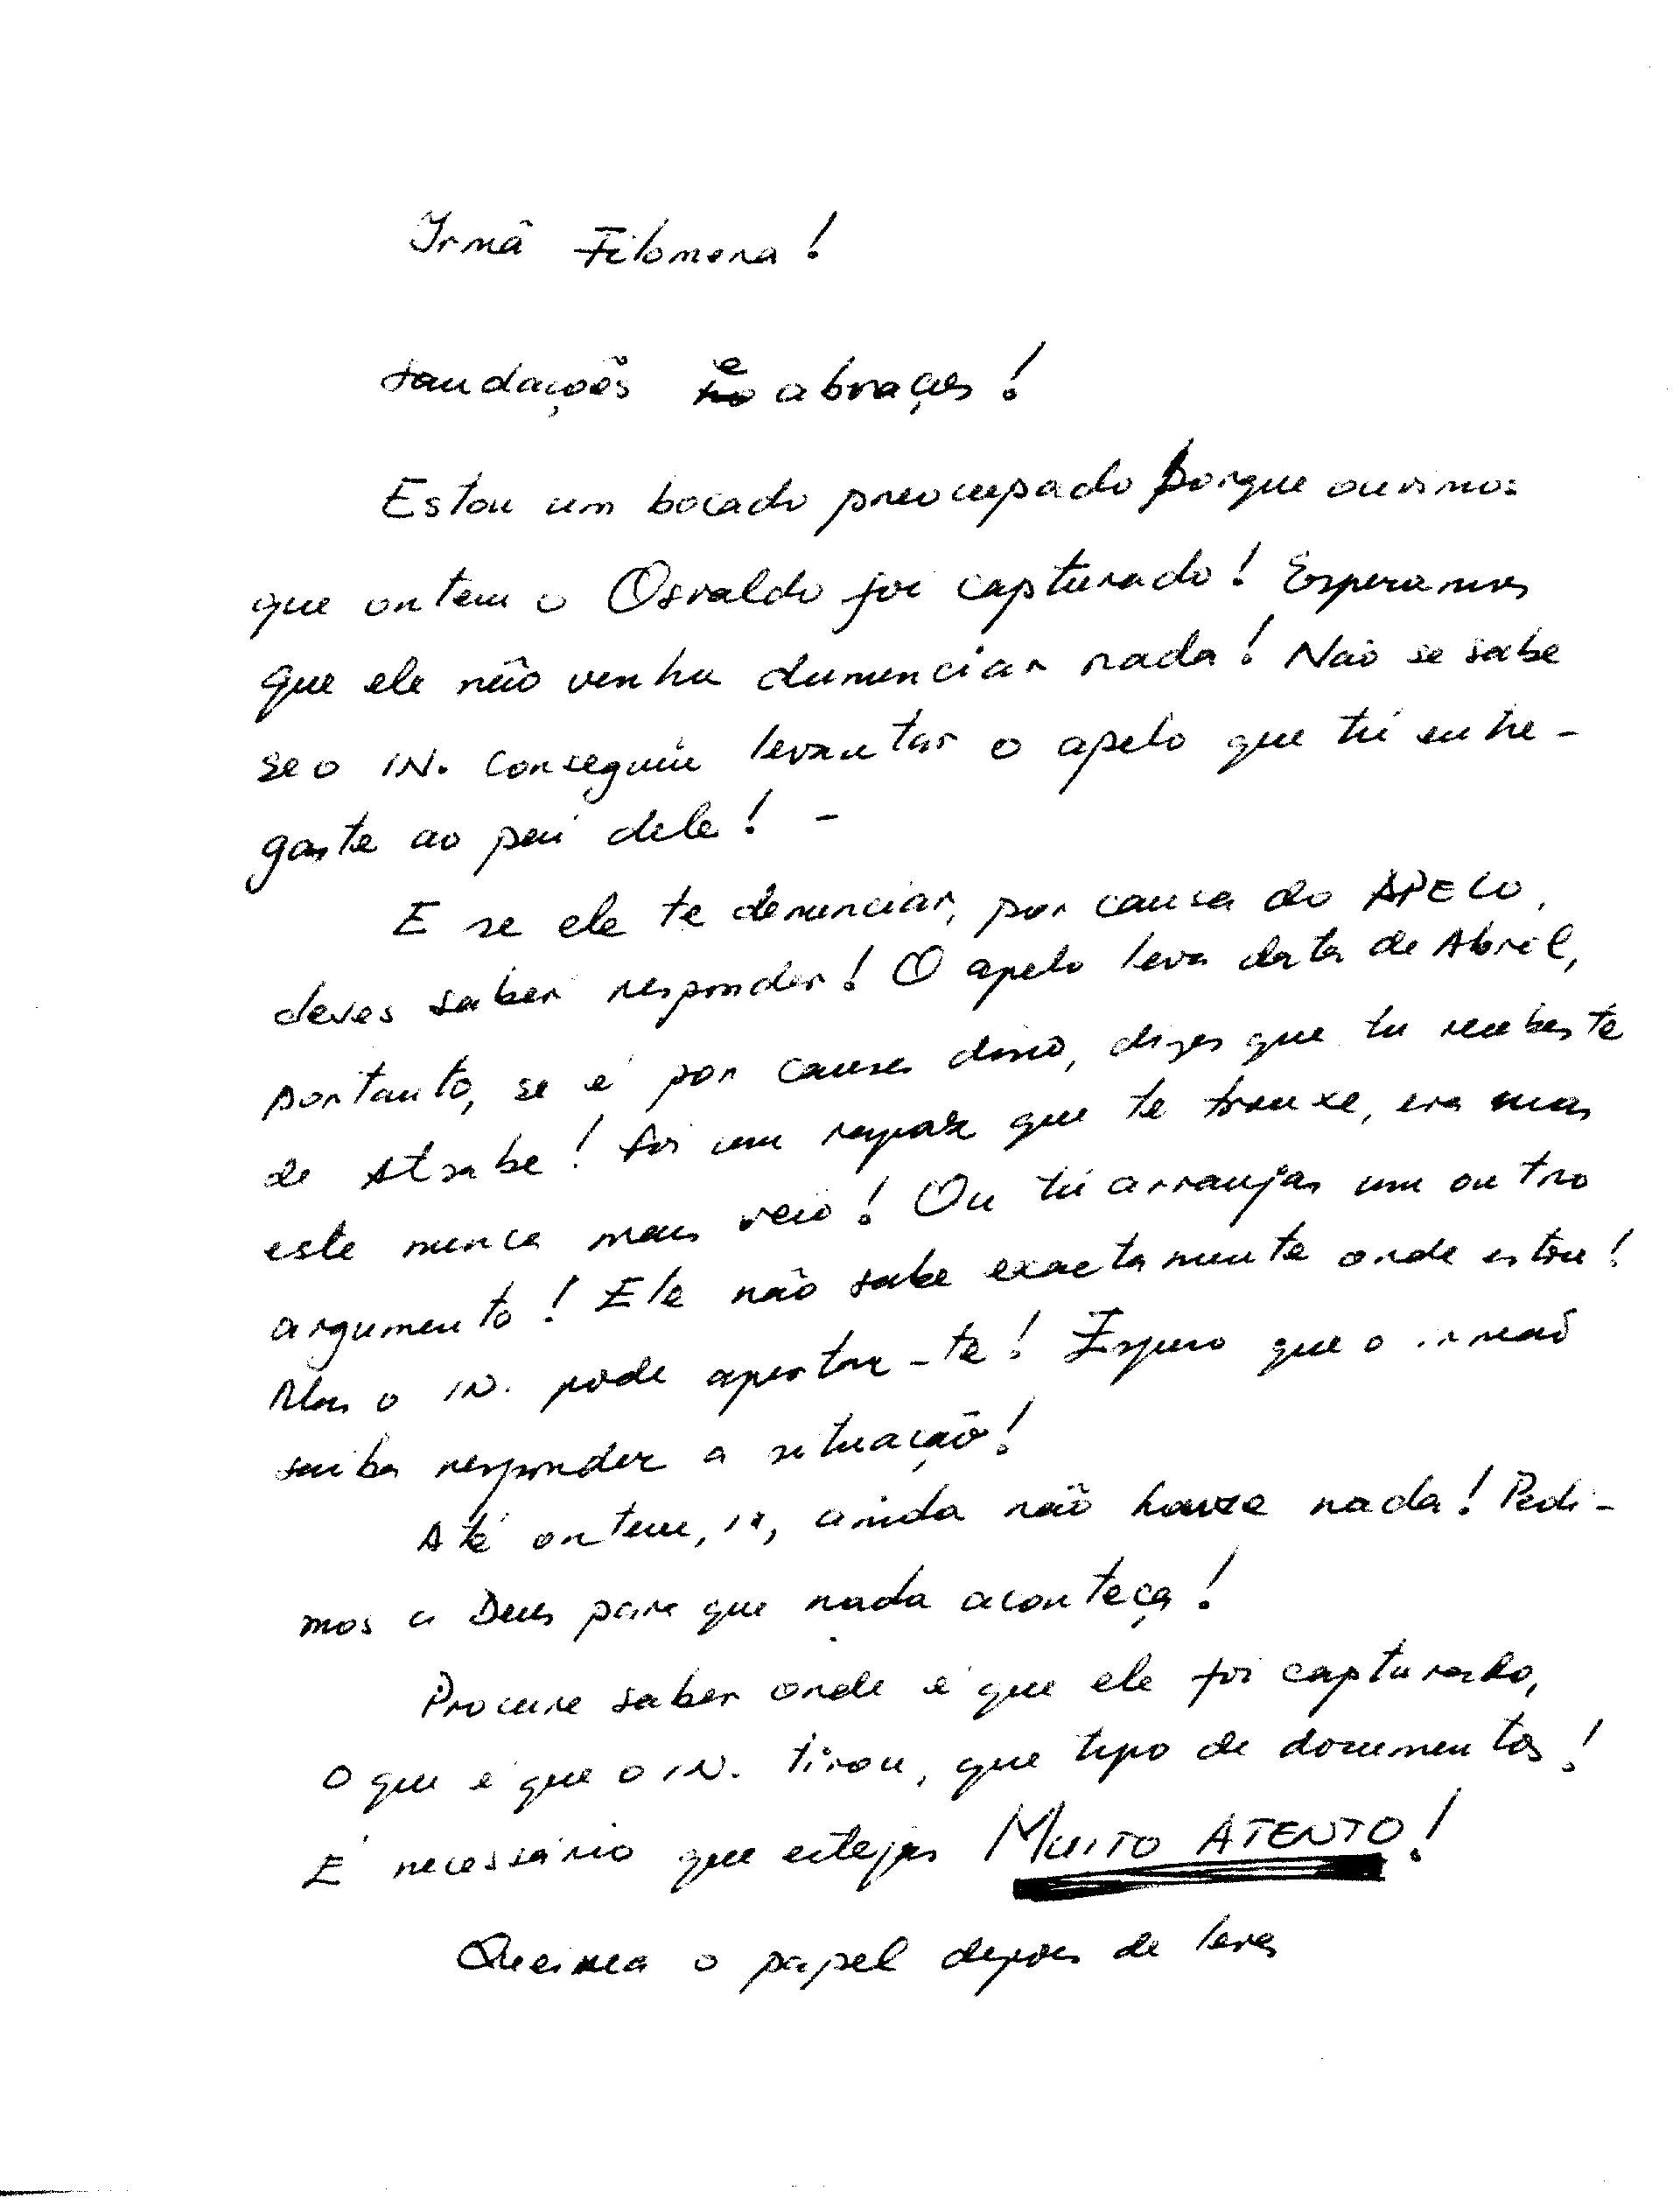 Irmã Filomena!
Saudações e abraços!
Estou um bocado preocupado porque ouvimos
que ontem o Osvaldo foi capturado! Esperamos
que ele não venha denunciar nada! Não se sabe
se o IN. conseguiu levantar o apelo que tú entre-
gaste ao pai dele! -
E se ele te denunciar, por causa do APELO,
deves saber responder! O apelo leva data de Abril,
portanto, se é por causa disso, dizes que tu recebeste
de Atsabe! Foi um rapaz que te trouxe, era mas
este nunca mais veio! Ou tú arranjas um outro
argumento! Ele não sabe exactamente onde estou!
Mas o IN. pode apertar-te! Espero que o irmão
saiba responder a situação!
Até ontem, ainda não houve nada! Pedi-
mos a Deus para que nada aconteça!
Procure saber onde é que ele foi capturado,
O que é que o IN. tirou, que tipo de documentos!
É necessário que estejas MUITO ATENTO!
Queima o papel depois de leres